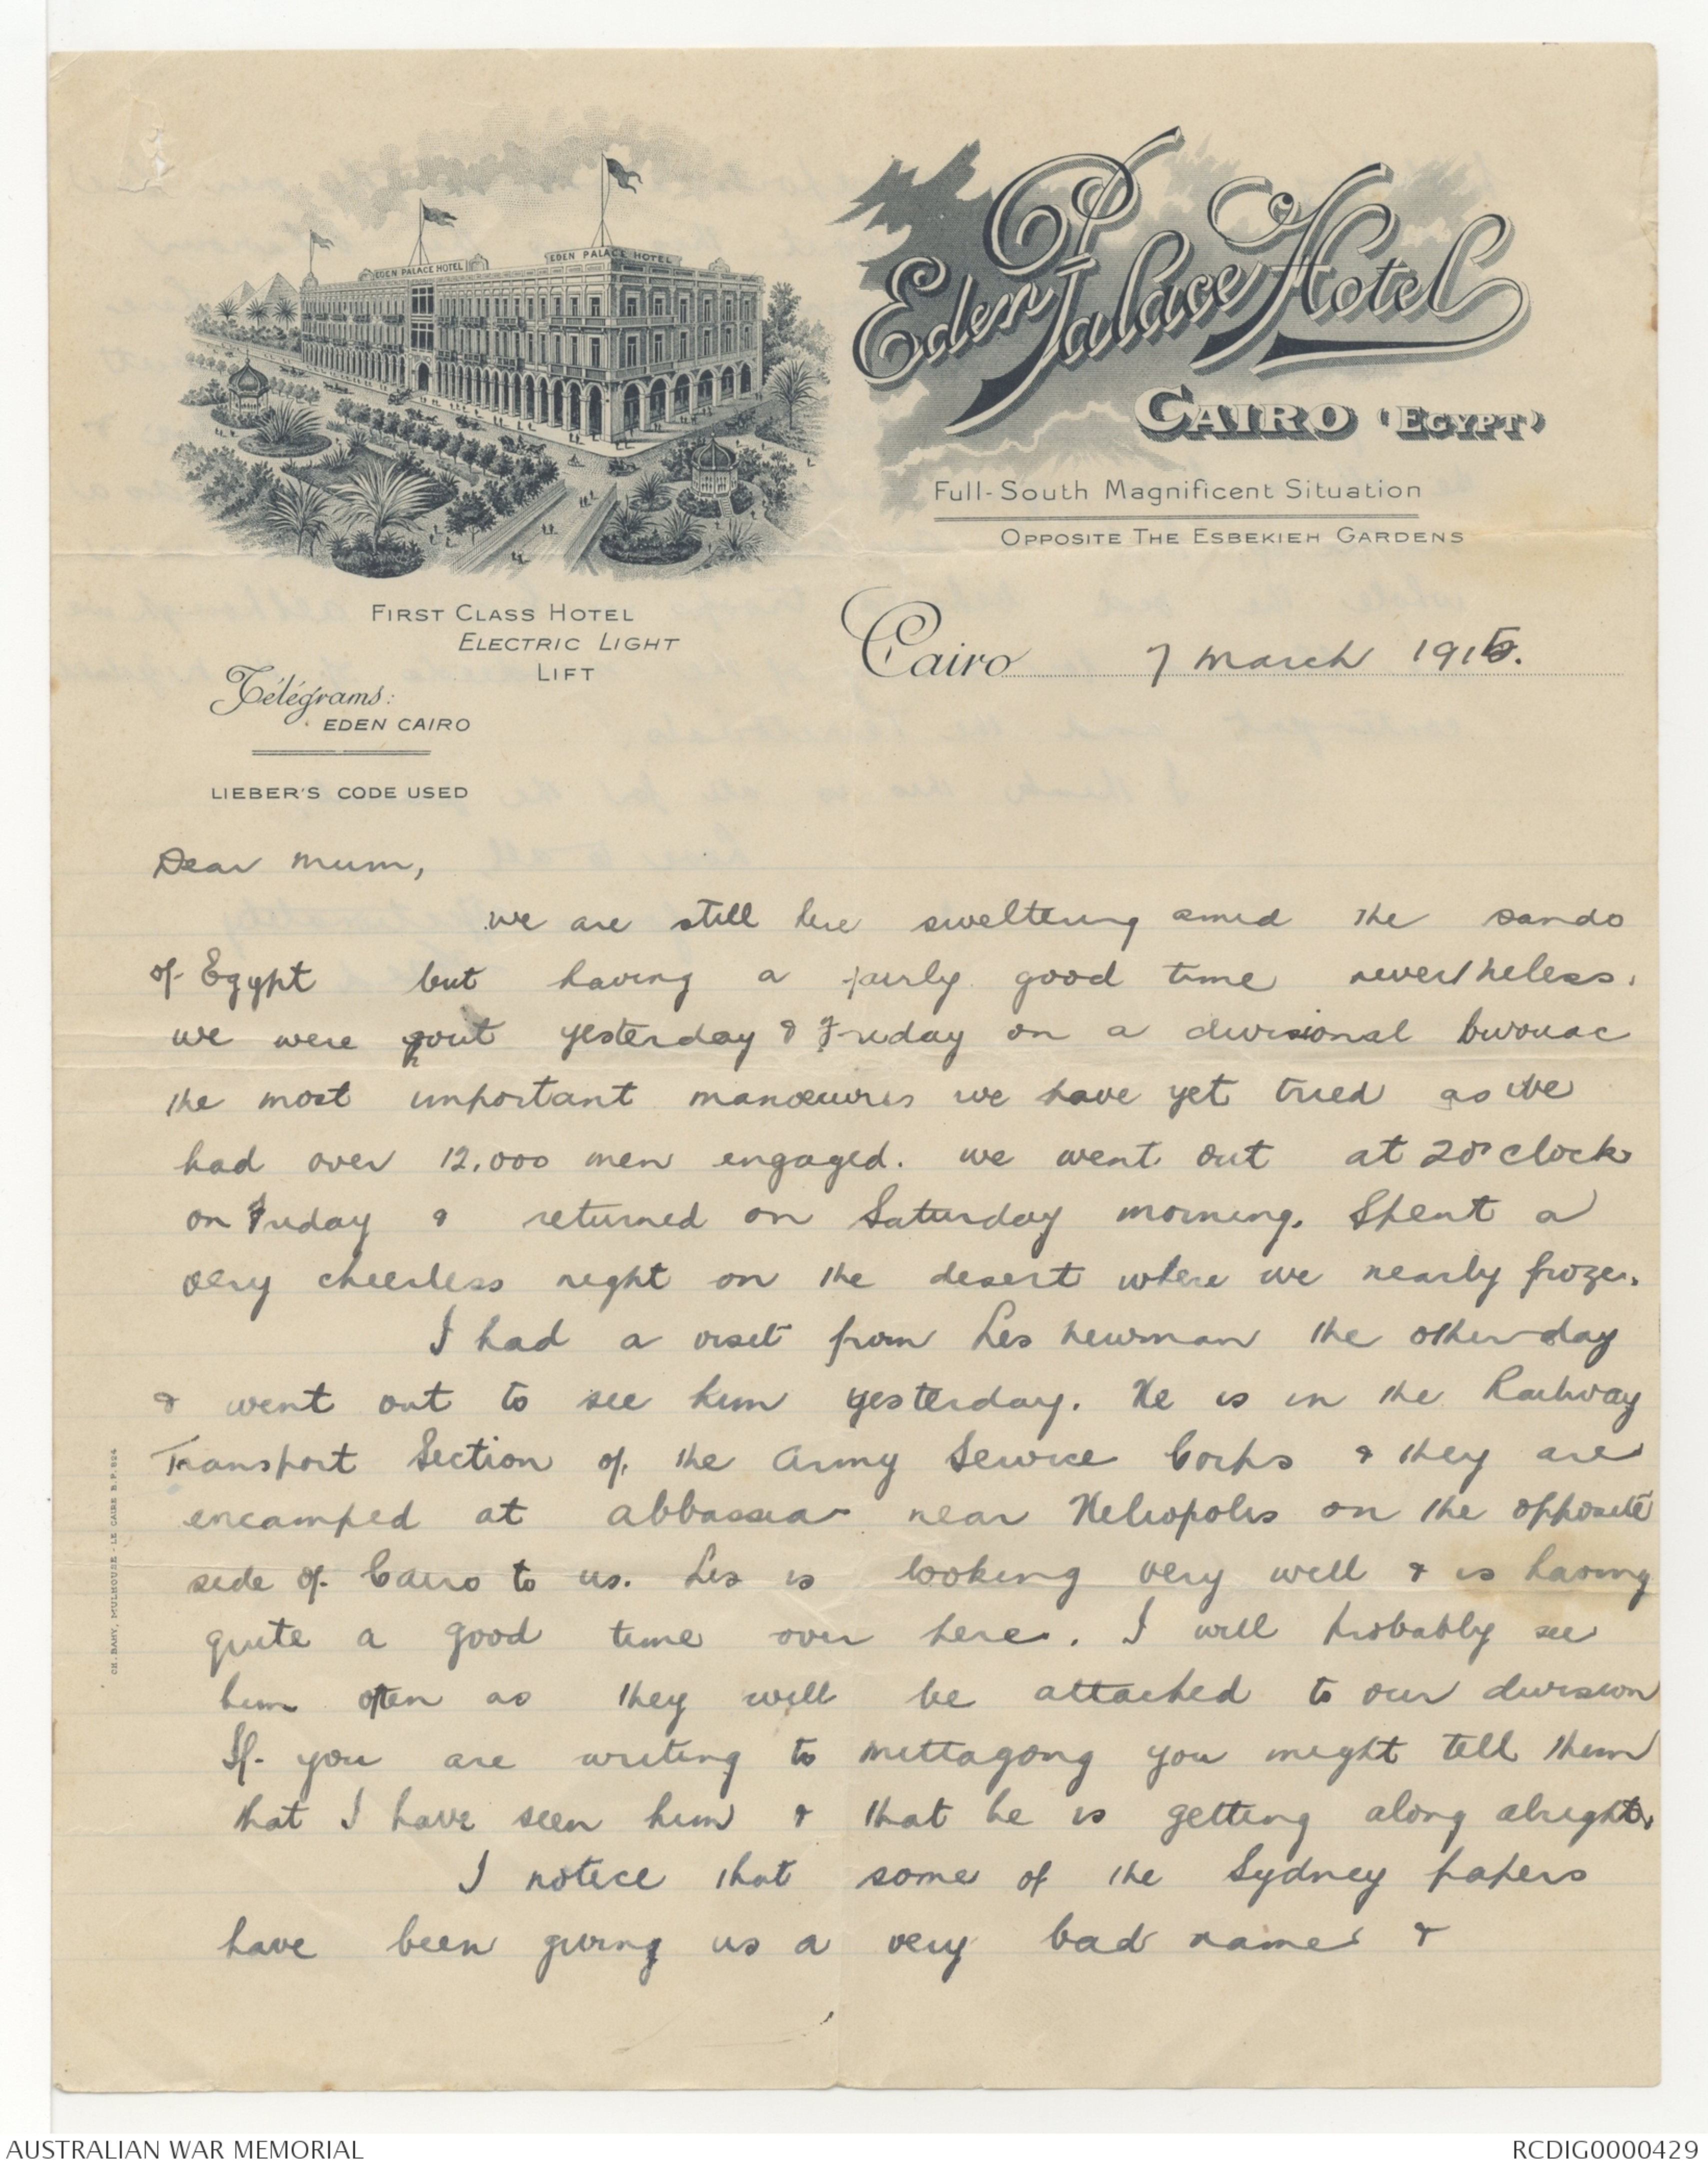 EDEN PALACE HOTEL
EDEN PALACE HOTEL
Eden Palace Hotel
CAIRO (EGYPT)
Full-South Magnificent Situation
OPPOSITE THE ESBEKIEH GARDENS
FIRST CLASS HOTEL
ELECTRIC LIGHT
LIFT
Télégrams:
EDEN CAIRO
LIEBER'S CODE USED
Cairo 7 March 1915.
Dear Mum,
we are still here sweltering amid the sands
of Egypt but having a fairly good time nevertheless.
we were out yesterday & Friday on a divisional bivouac
the most important manoeuvres we have yet tried as we
had over 12.000 men engaged. we went out at 2 o'clock
on Friday & returned on Saturday morning. Spent a
very cheerless night on the desert where we nearly froze.
I had a visit from Les Newman the other day
& went out to see him yesterday. He is in the Railway
Transport Section of the Army Service Corps & they are
encamped at abbassia near Heliopolis on the opposite
side of Cairo to us. Les is looking very well & is having
quite a good time over here. I will probably see
him often as they will be attached to our division
If you are writing to Mittagong you might tell them
that I have seen him & that he is getting along alright.
I notice that some of the Sydney papers
have been giving us a very bad name &
CH. BAHY, MULHOUSE - LE CAIRE B.P. 924
AUSTRALIAN WAR MEMORIAL
RCDIG0000429